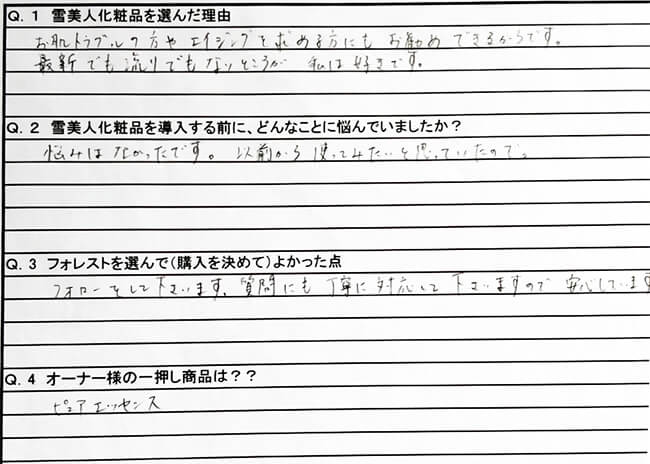 Q. 1 雪美人化粧品を選んだ理由
お肌トラブルの方や エイジングを求める方にも お勧めできるからです。
最新でも流行でもないところが 私は好きです。
Q. 2 雪美人化粧品を導入する前に、どんなことに悩んでいましたか？
悩みはなかったです。以前から使ってみたいと思っていたので。
Q. 3 フォレストを選んで（購入を決めて）よかった点
フォローをして下さいます。質問にも丁寧に対応して下さいますので安心しています
Q. 4 オーナー様の一押し商品は？？
ピュアエッセンス